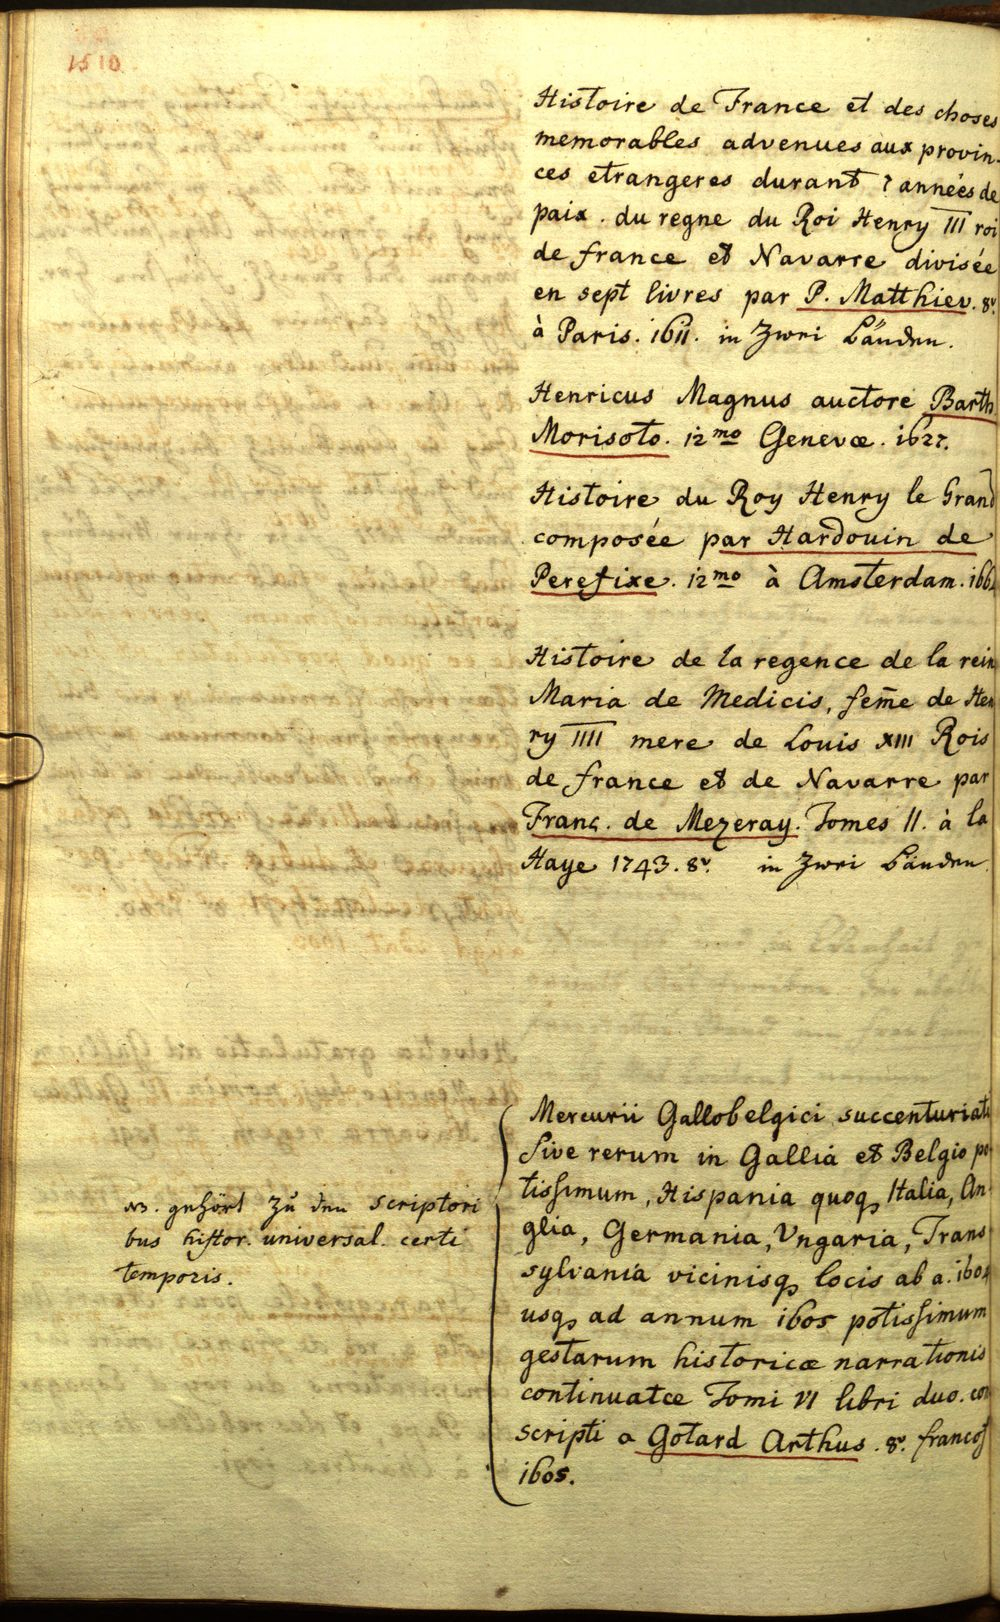 1510
Histoire de France et des choses
memorables advenues aux provin-
ces etrangeres durant 7 années de
paix. du regne du Roi Henry IIII roi
de france et Navarre divisée
en sept livres par P. Matthiev. 8v.
à Paris. 1611. in Zwei Bänden.
Henricus Magnus auctore Barth
Morisoto. 12mo Genevæ. 1627.
Histoire du Roy Henry le Grand
composée par Hardouin de
Perefixe. 12mo à Amsterdam. 166
Histoire de la regence de la rein
Maria de Medicis, fem̅e de Hen
ry IIII mere de Louis XIII Rois
de france et de Navarre par
Franç. de Mezeray. Tomes II. à la
Haye 1743. 8v. in Zwei Bänden.
Mercurii Gallobelgici succenturiati
sive rerum in Gallia et Belgio po
tissimum, Hispania quoq, Italia, An
glia, Germania, Vngaria, Trans
sylvania vicinisq, locis ab a. 1604
usq, ad annum 1605 potissimum
gestarum historicæ narrationis
continuatæ Tomi VI libri duo. con
scripti a Gotard Arthus. 8v. francof
1605.
NB. gehört zu den scriptori
bus histor. universal. certi
temporis.